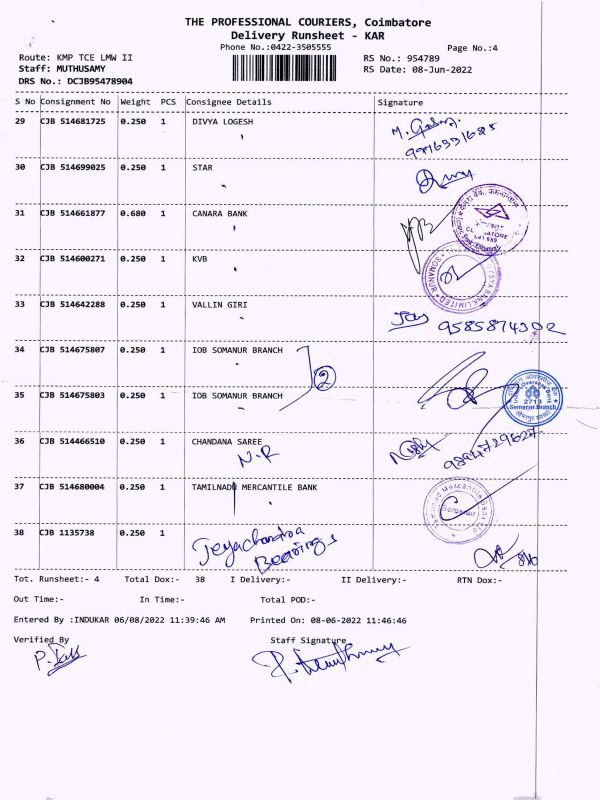 THE PROFESSIONAL COURIERS, Coimbatore
Delivery Runsheet - KAR
Phone No.:0422-3505555
Page No.:4
Route: KMP TCE LMW II
RS No.: 954789
Staff: MUTHUSAMY
RS Date: 08-Jun-2022
DRS No.: DCJB95478904
S No Consignment No Weight PCS Consignee Details Signature
29 CJB 514681725 0.250 1 DIVYA LOGESH
30 CJB 514699025 0.250 1 STAR
31 CJB 514661877 0.680 1 CANARA BANK
32 CJB 514600271 0.250 1 KVB
33 CJB 514642288 0.250 1 VALLIN GIRI
9585874302
34 CJB 514675807 0.250 1 IOB SOMANUR BRANCH
2
35 CJB 514675803 0.250 1 IOB SOMANUR BRANCH
Indian Overseas Bank
2713
Somanur Branch
36 CJB 514466510 0.250 1 CHANDANA SAREE
N.R
9894729627
37 CJB 514680004 0.250 1 TAMILNADU MERCANTILE BANK
38 CJB 1135738 0.250 1
Jeyachandra
Bearings
Tot. Runsheet:- 4 Total Dox:- 38 I Delivery:- II Delivery:- RTN Dox:-
Out Time:- In Time:- Total POD:-
Entered By :INDUKAR 06/08/2022 11:39:46 AM Printed On: 08-06-2022 11:46:46
Verified By Staff Signature